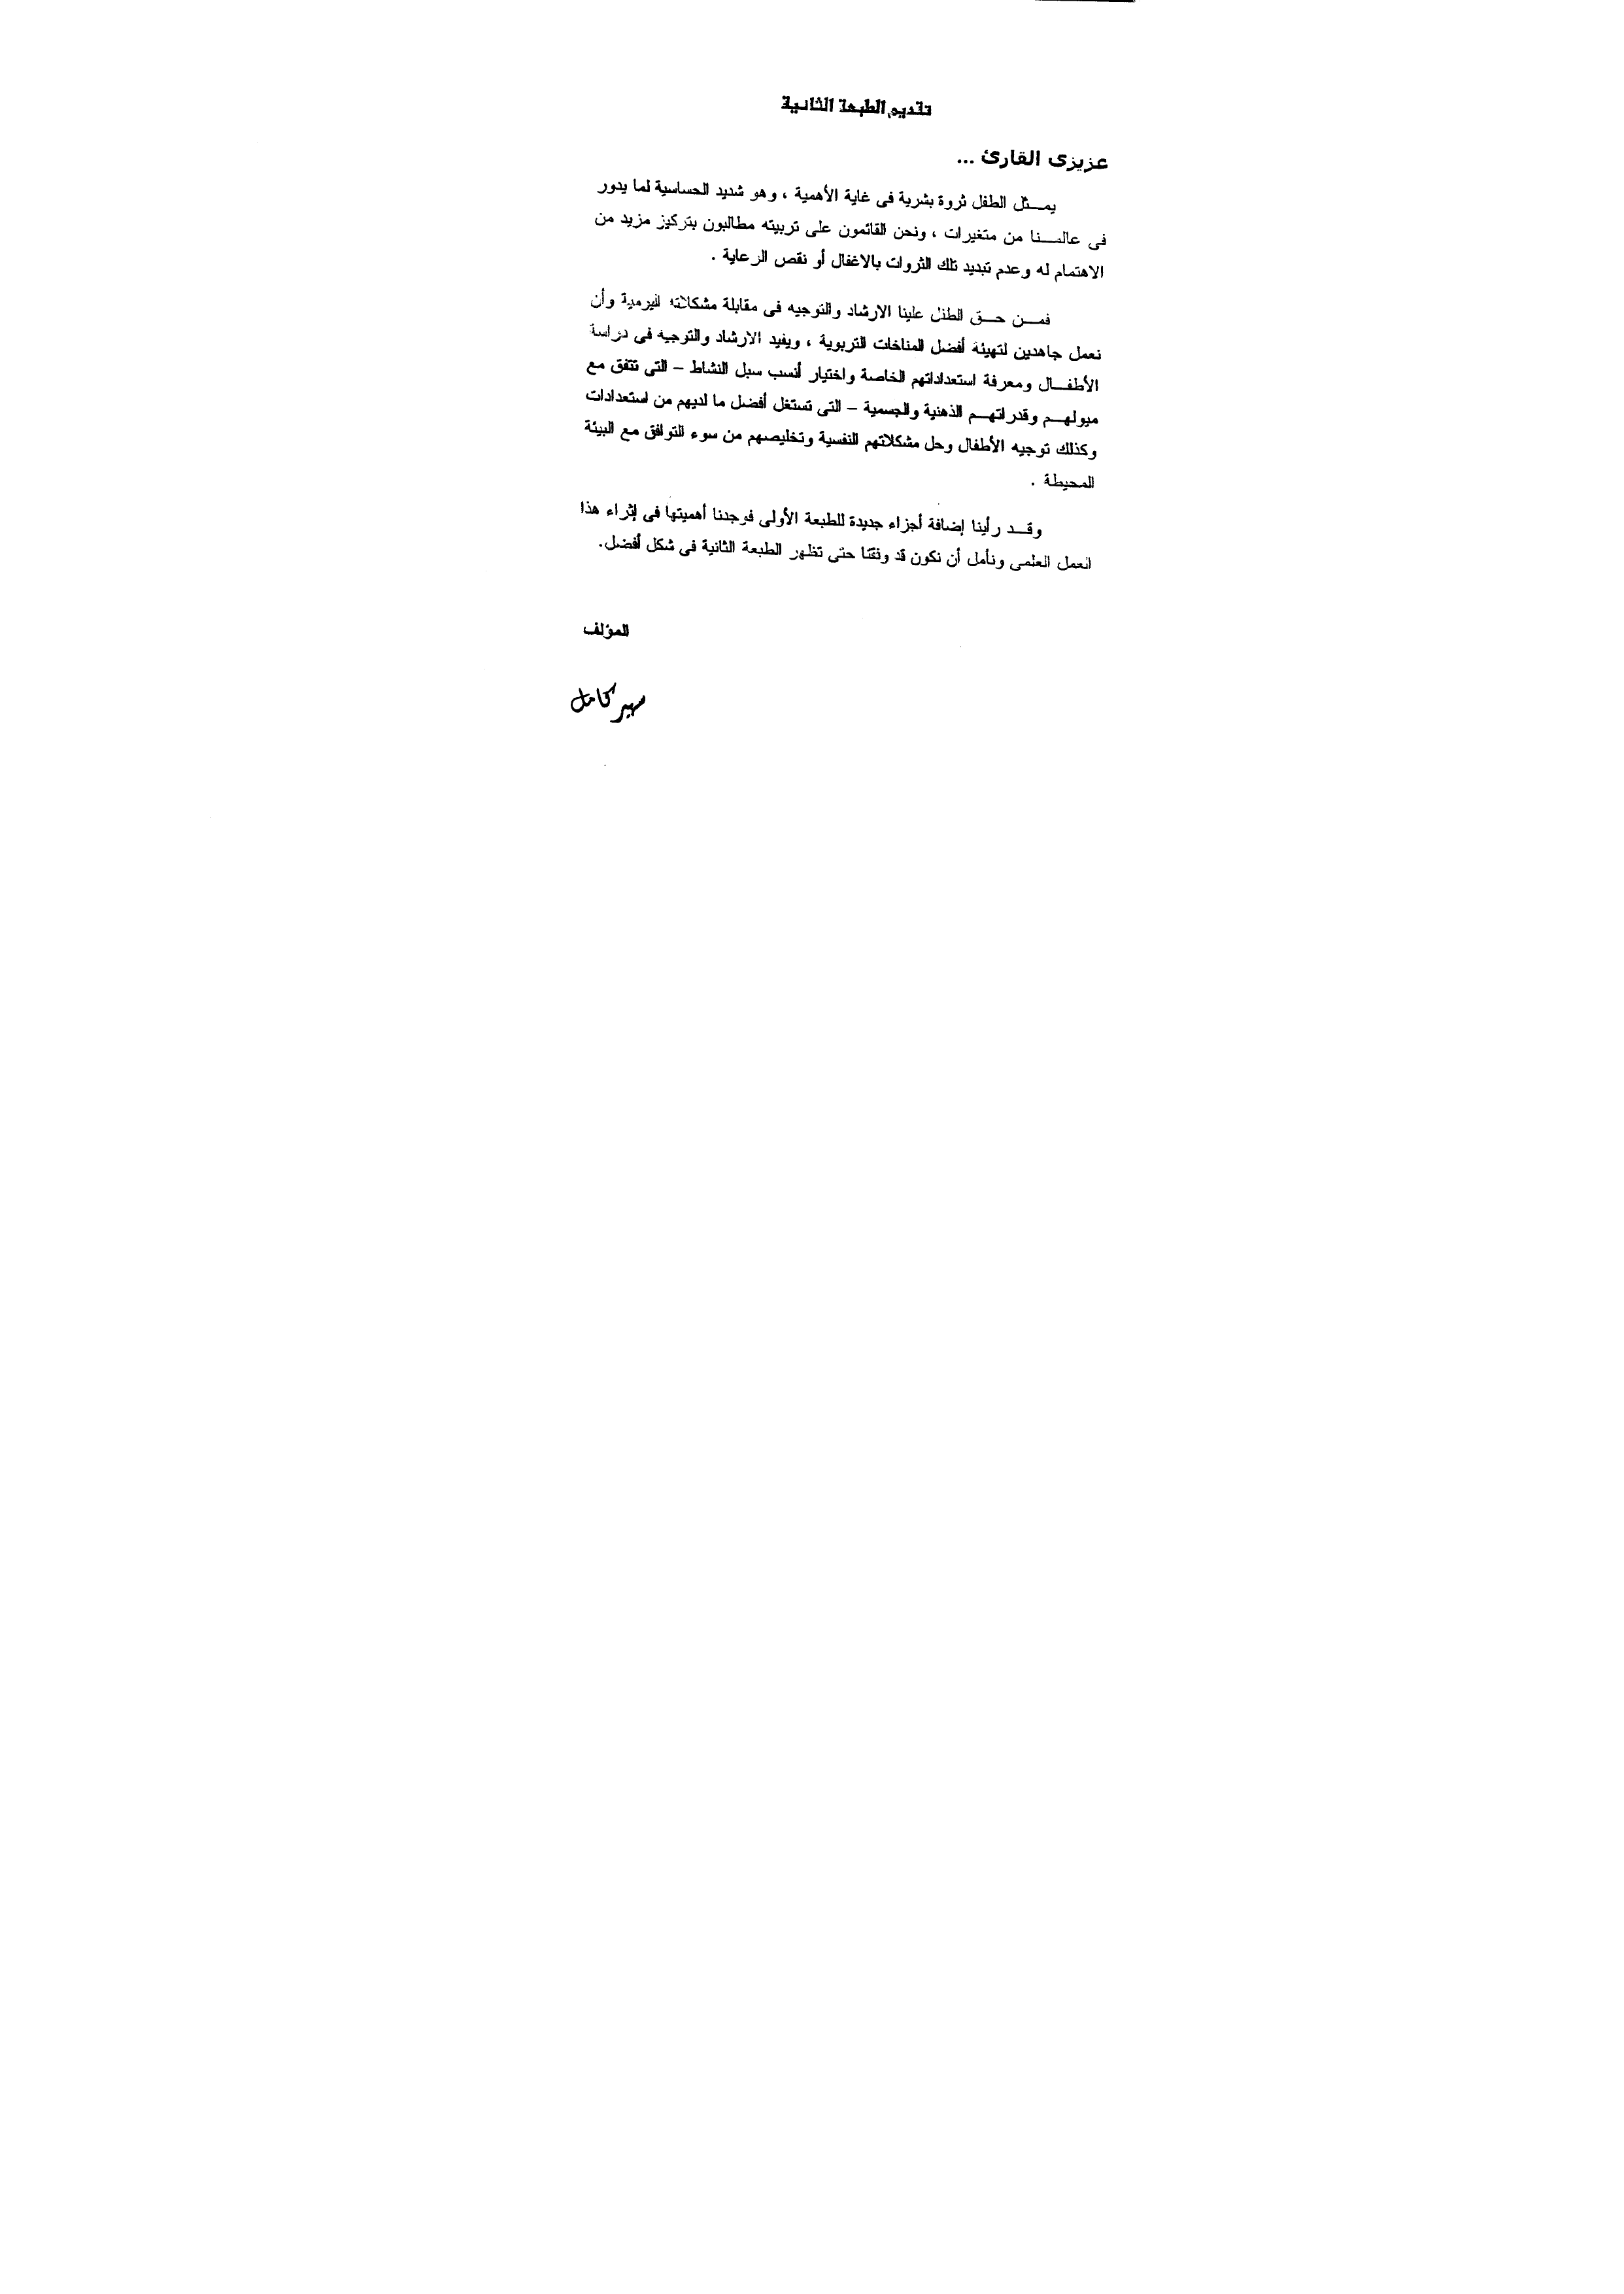 تقديم الطبعة الثانية
عزيزى القارئ ...
يمـــثل الطفل ثروة بشرية فى غاية الأهمية ، وهو شديد الحساسية لما يدور
فى عالمـــنا من متغيرات ، ونحن القائمون على تربيته مطالبون بتركيز مزيد من
الاهتمام له وعدم تبديد تلك الثروات بالاغفال أو نقص الرعاية .
فمـــن حـــق الطفل علينا الارشاد والتوجيه فى مقابلة مشكلاته اليومية وأن
نعمل جاهدين لتهيئة أفضل المناخات التربوية ، ويفيد الارشاد والتوجيه فى دراسة
الأطفـــال ومعرفة استعداداتهم الخاصة واختيار أنسب سبل النشاط – التى تتفق مع
ميولهـــم وقدراتهـــم الذهنية والجسمية – التى تستغل أفضل ما لديهم من استعدادات
وكذلك توجيه الأطفال وحل مشكلاتهم النفسية وتخليصهم من سوء التوافق مع البيئة
المحيطة .
وقـــد رأينا إضافة أجزاء جديدة للطبعة الأولى فوجدنا أهميتها فى إثراء هذا
العمل العلمى ونأمل أن نكون قد وفقنا حتى تظهر الطبعة الثانية فى شكل أفضل.
المؤلف
سهير كامل